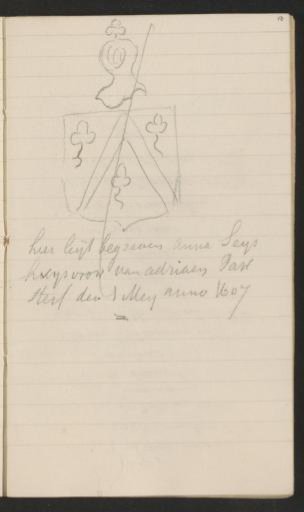 hier leijt begraven anna Seys
huysvrou van adriaen
sterf den 1 Mey anno 1607